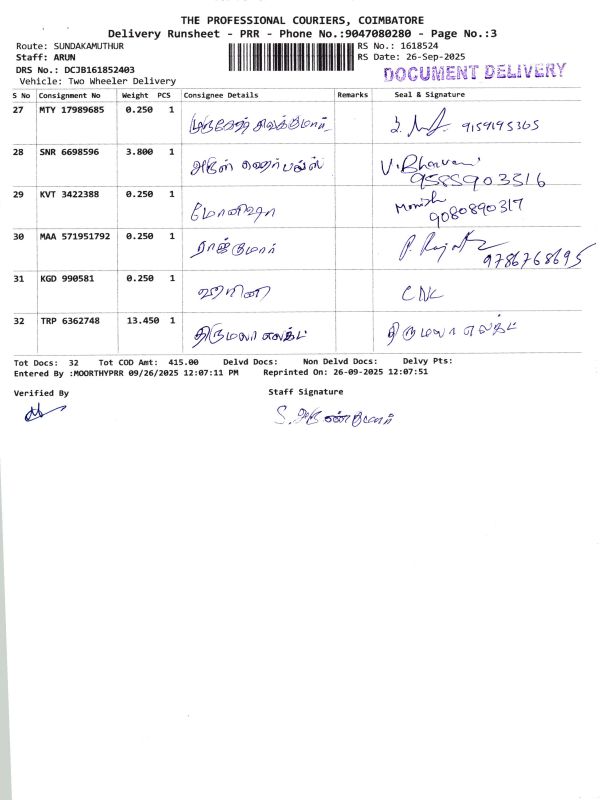 THE PROFESSIONAL COURIERS, COIMBATORE
Delivery Runsheet - PRR - Phone No.:9047080280 - Page No.:3
Route: SUNDAKAMUTHUR
RS No.: 1618524
Staff: ARUN
RS Date: 26-Sep-2025
DRS No.: DCJB161852403
DOCUMENT DELIVERY
Vehicle: Two Wheeler Delivery
S No Consignment No Weight PCS Consignee Details Remarks Seal & Signature
27 MTY 17989685 0.250 1 9159195365
28 SNR 6698596 3.800 1 அருள் V. Bhavani
9585903516
29 KVT 3422388 0.250 1 மோனிஷா Monish
9080890317
30 MAA 571951792 0.250 1 ராஜ்குமார்
9786768695
31 KGD 990581 0.250 1 ஹரிணி
32 TRP 6362748 13.450 1 திருமலா திருமலா
Tot Docs: 32 Tot COD Amt: 415.00 Delvd Docs: Non Delvd Docs: Delvy Pts:
Entered By :MOORTHYPRR 09/26/2025 12:07:11 PM Reprinted On: 26-09-2025 12:07:51
Verified By Staff Signature
S. அருண்குமார்